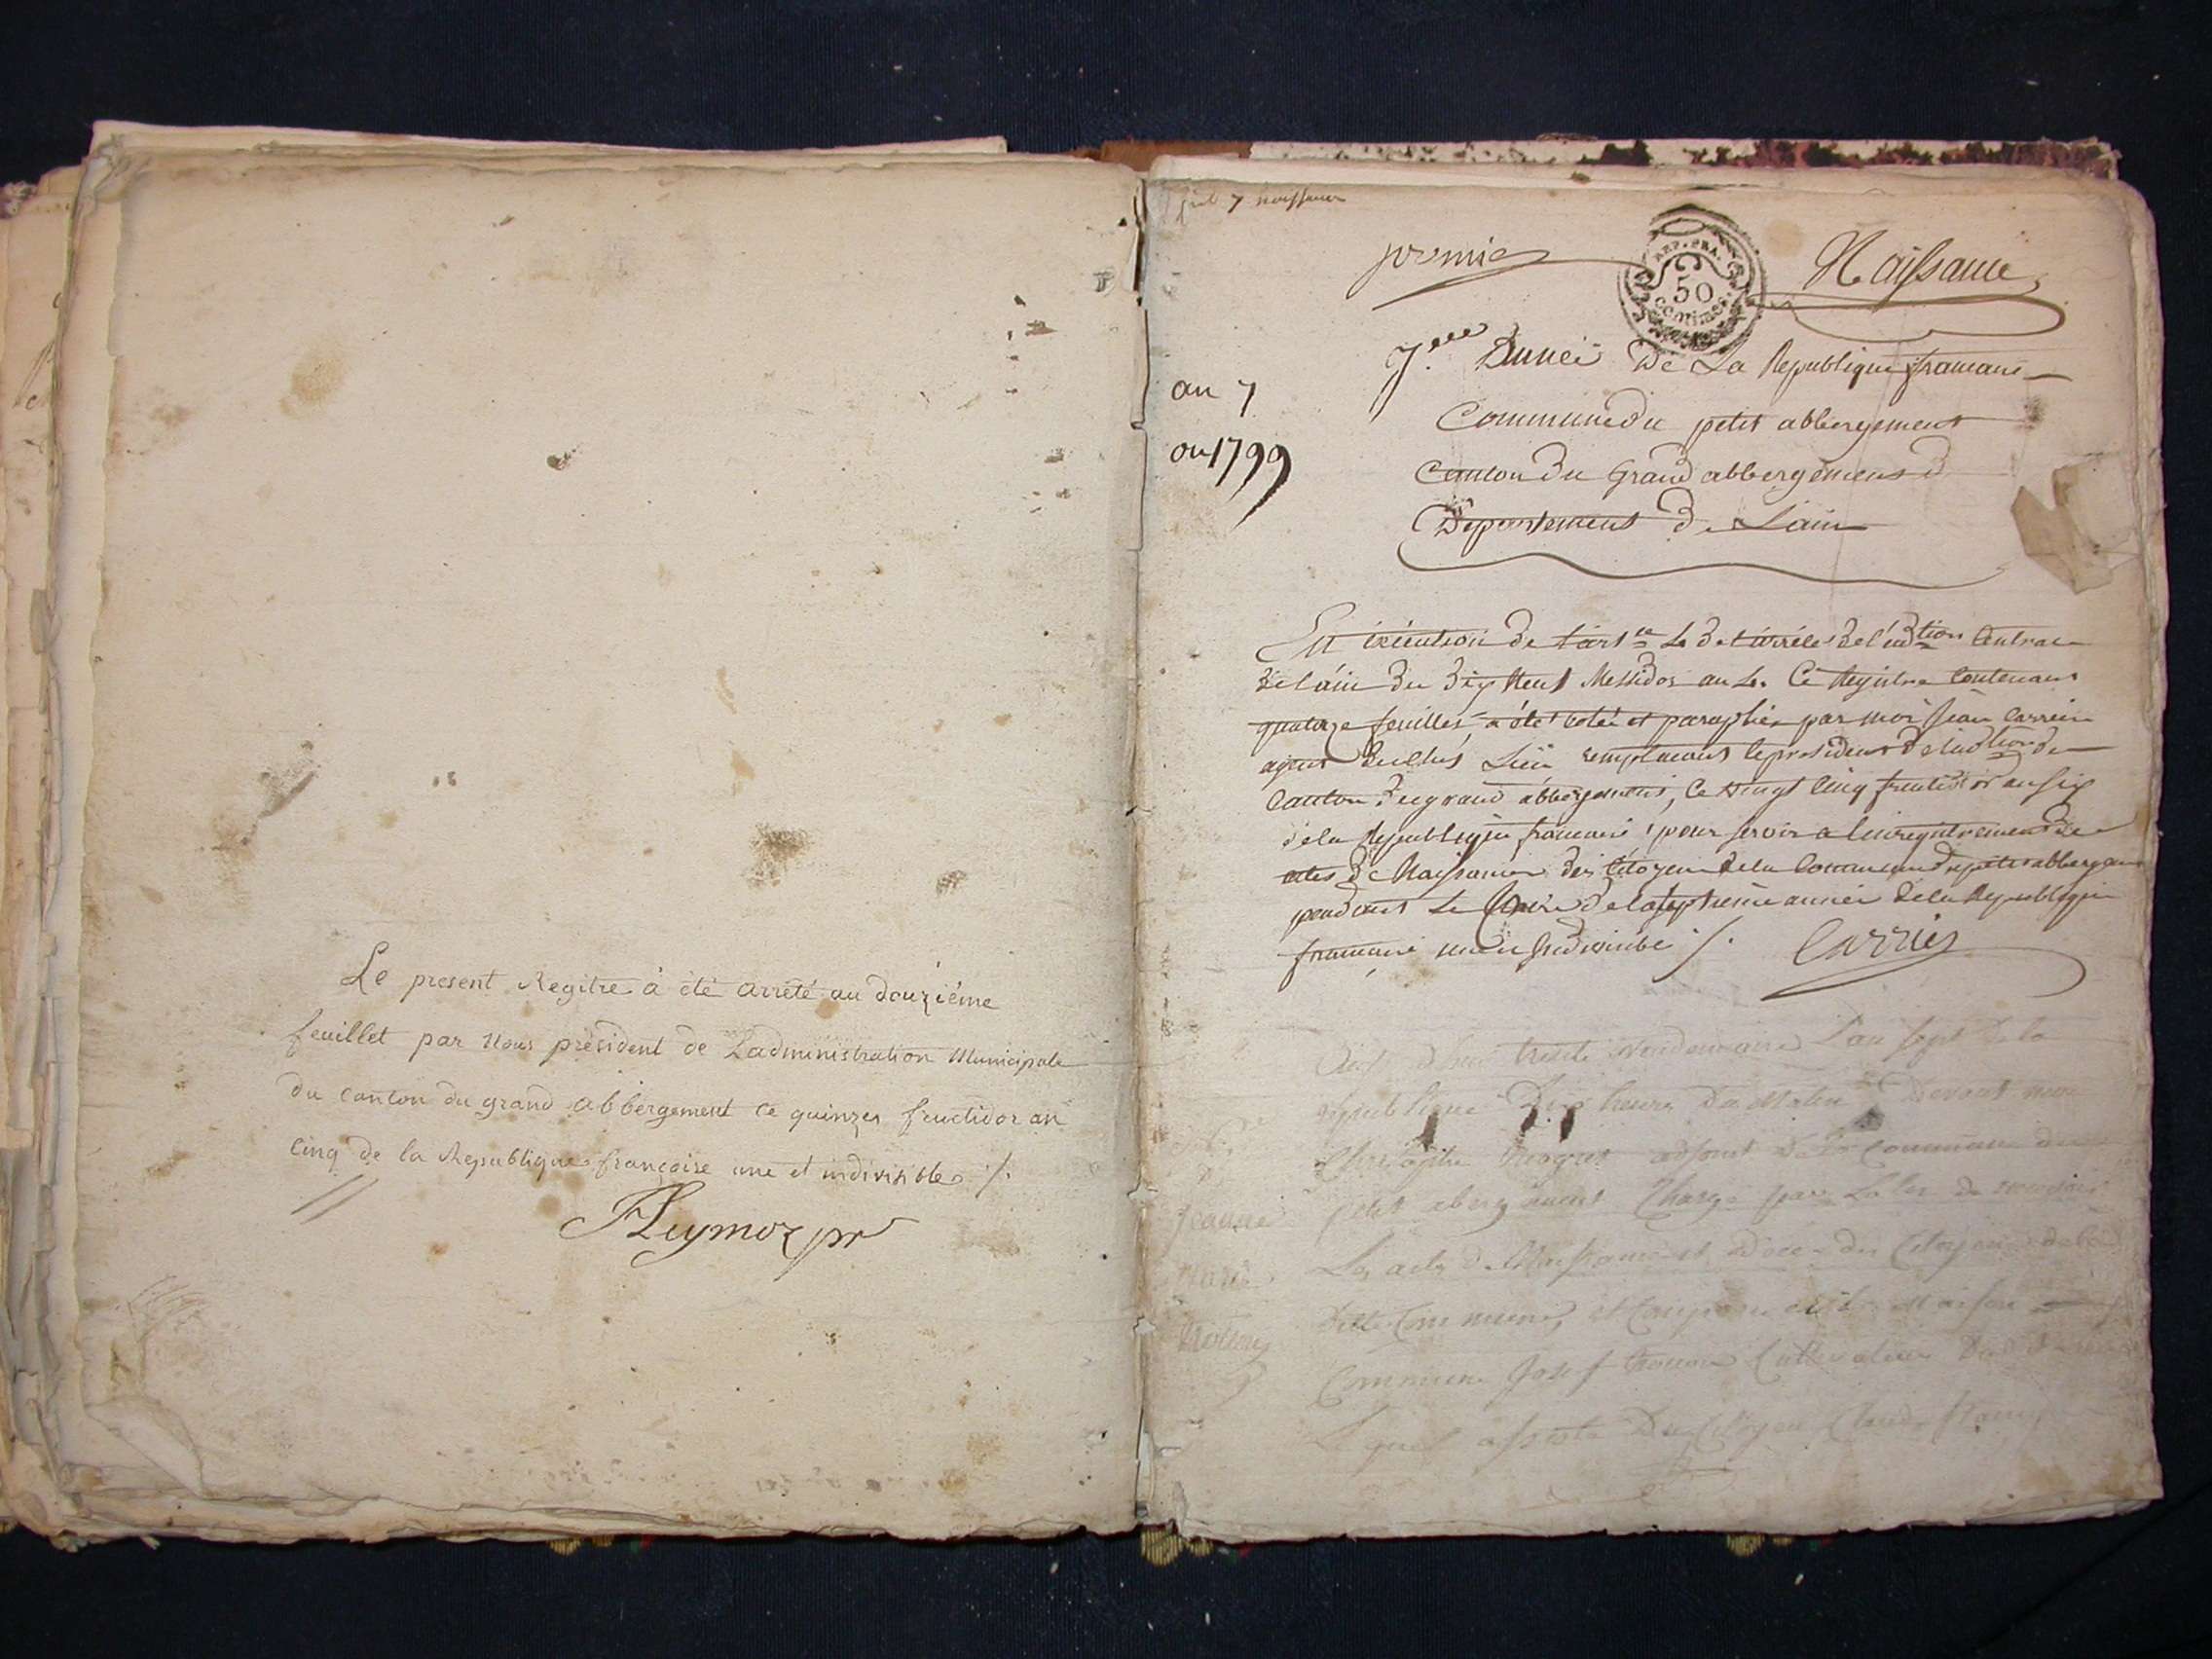 Le present Regitre à été arreté au douziéme
feuillet par Nous président de Ladministration Municipale
du canton du grand abbergement ce quinzes fructidor an
cinq de la Republique françoise une et indivisible ./.
pr
7 naissance
premier
Naissance
REP. FRA.
50
centimes
an 7
ou 1799
7.eme Année De La Republique francaise
Commune du petit abbergement
Canton du Grand abbergement
Departement De Lain
En éxécution de l'art.le 4 de l'arrêté de l'adtion Centrale
de l'ain du dix Neuf Messidor an 4. Ce Registre Contenant
quatorze feuilles, a été Coté et paraphé par moi Jean Carrier
agent du chef Lieu remplacant le president de l'adtion du
Canton du grand abbergement, Ce vingt Cinq fructidor an six
de la Republique francaise, pour servir a l'enregistrement des
actes de Naissance des Citoyens de la Commune du petit abbergement
pendant Le Cours de la septieme année de la Republique
francaise une et Indivisible ./. Carrier
trente vendemiaire L'an sept De la
Republique Dix heures Du Matin Devant moi
adjoint De la Commune du
petit abergement Charge par La loi de
Les actes de Naissance et Déces des Citoyens
Commune
Jeanne
Marie
Commune Josef Cultivateur
Le quel assisté Du Citoyen Claude